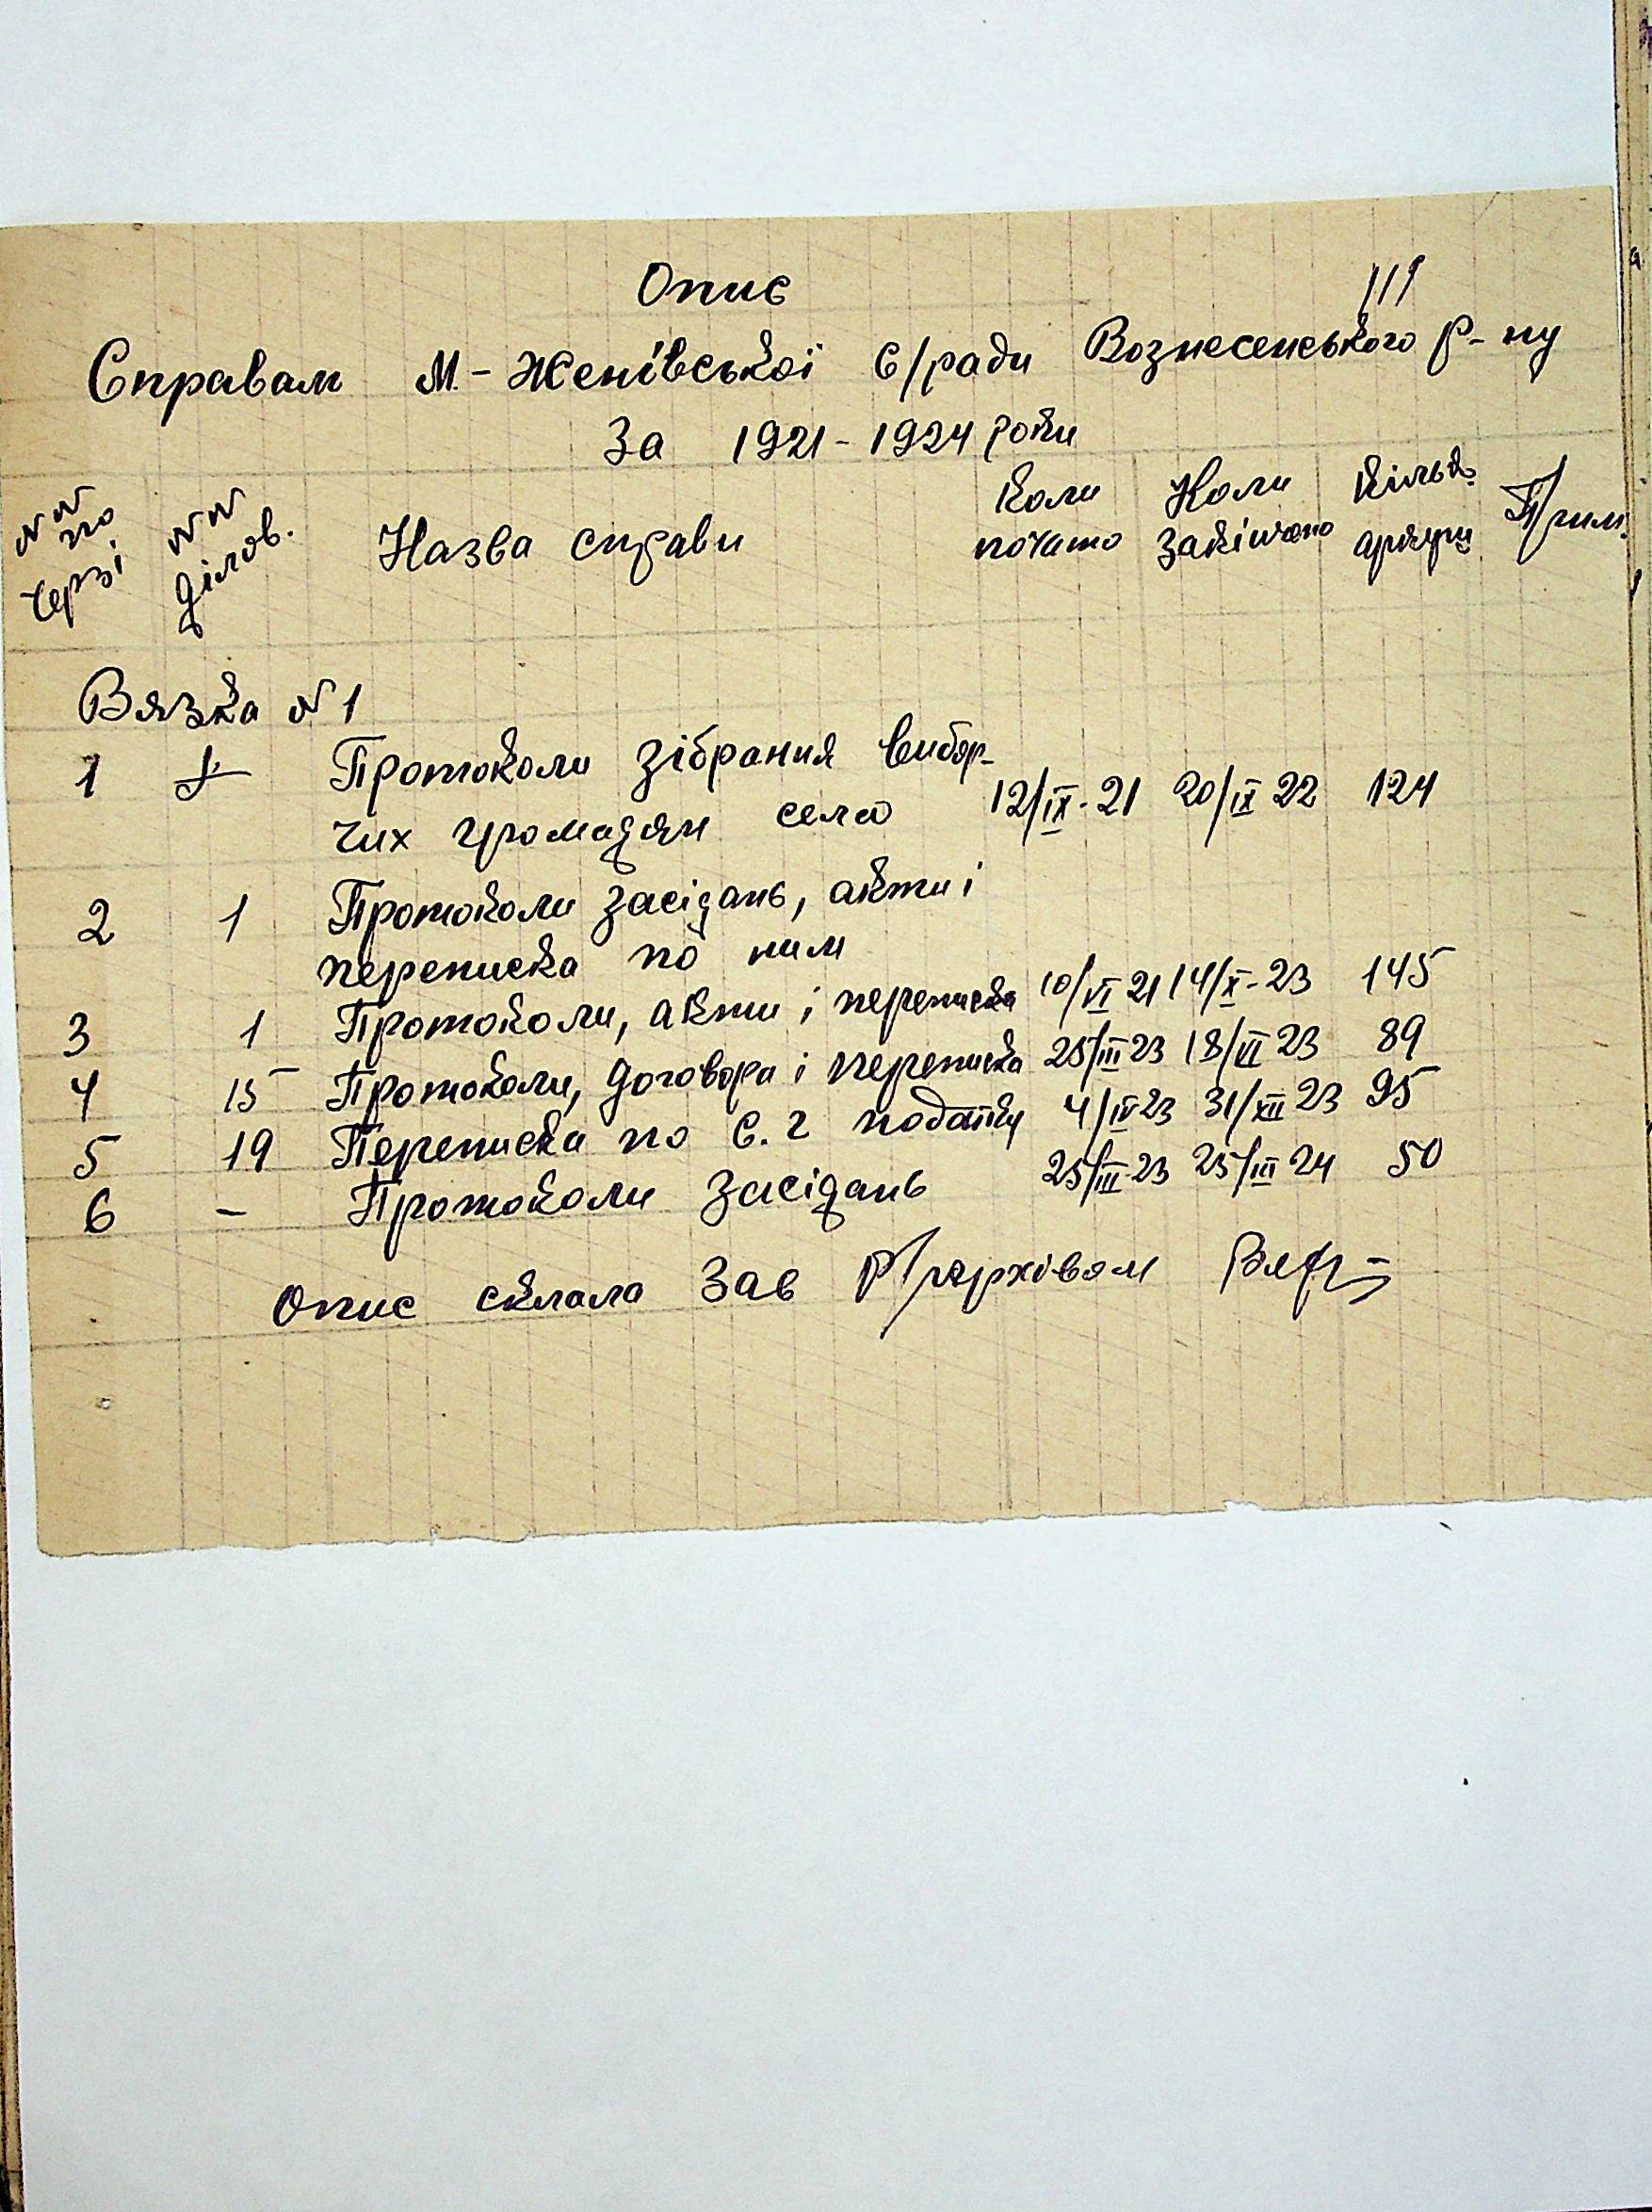 Опис
111
Справам М.-Женівської с/ради Вознесенського р-ну
За 1921-1924 роки
NN по черзі NN ділов. Назва справи Коли почато Коли закінчено Кільк. аркуш Прим.
Вязка N1
1 Протоколи зібрання вибор-
чих громадян села 12/IX-21 20/IX 22 124
2 1 Протоколи засідань, акти і
переписка по ним 10/VI 21 14/X-23 145
3 1 Протоколи, акти і переписка 25/III 23 18/VII 23 89
4 15 Протоколи, договора і переписка 4/IV-23 31/XII 23 95
5 19 Переписка по с. г податку 25/III-23 25/III 24 50
6 - Протоколи засідань
Опис склала Зав Р/держархівом